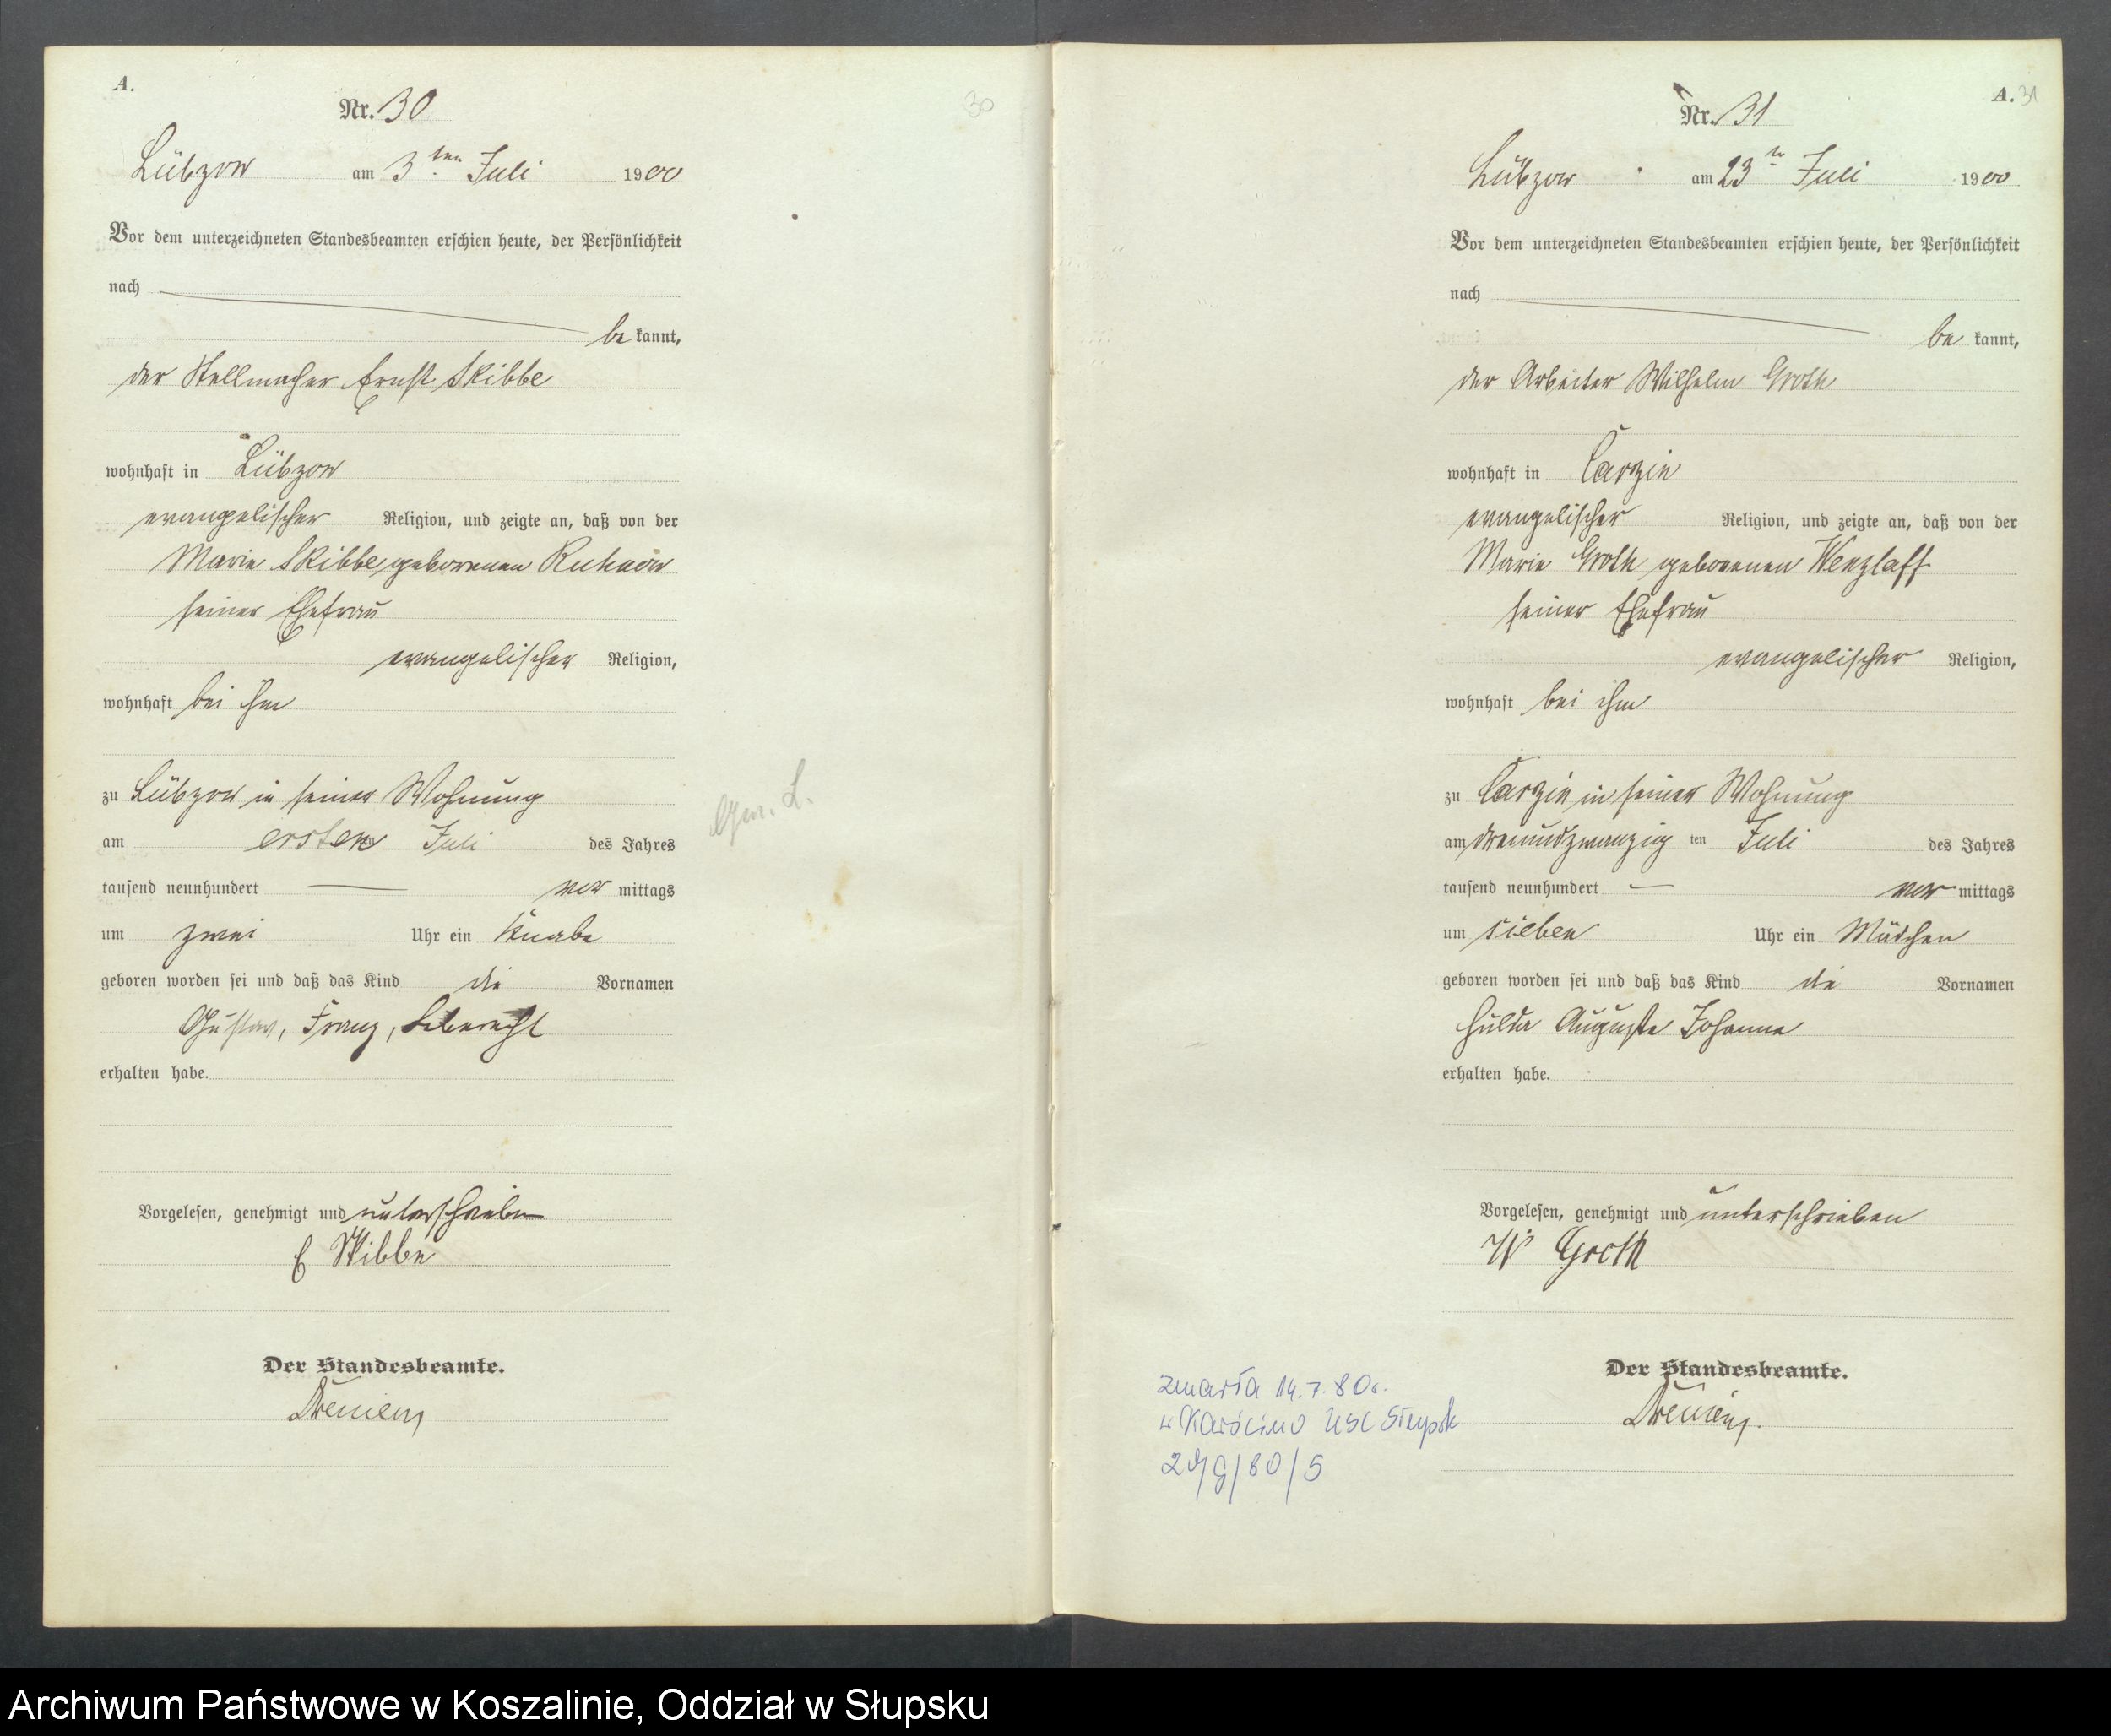 A.
Nr. 30
30
Lübzow am 3ten Juli 1900
Vor dem unterzeichneten Standesbeamten erschien heute, der Persönlichkeit
nach
bekannt,
der Stellmacher Ernst Skibbe
wohnhaft in Lübzow
evangelischer Religion, und zeigte an, daß von der
Marie Skibbe geborenen Ruhnow
seiner Ehefrau
evangelischer Religion,
wohnhaft bei ihm
zu Lübzow in seiner Wohnung
am ersten Juli des Jahres
tausend neunhundert — vor mittags
um zwei Uhr ein Knabe
geboren worden sei und daß das Kind die Vornamen
Gustav, Franz, Leberecht
erhalten habe.
Vorgelesen, genehmigt und unterschrieben
E Skibbe
Der Standesbeamte.
A. 31
Nr. 31
Lübzow am 23te Juli 1900
Vor dem unterzeichneten Standesbeamten erschien heute, der Persönlichkeit
nach
be kannt,
der Arbeiter Wilhelm Groth
wohnhaft in Carzin
evangelischer Religion, und zeigte an, daß von der
Marie Groth geborenen Wenzlaff
seiner Ehefrau
evangelischer Religion,
wohnhaft bei ihm
zu Carzin in seiner Wohnung
am dreiundzwanzig ten Juli des Jahres
tausend neunhundert — vor mittags
um sieben Uhr ein Mädchen
geboren worden sei und daß das Kind die Vornamen
Hulda Auguste Johanna
erhalten habe.
Vorgelesen, genehmigt und unterschrieben
W Groth
Der Standesbeamte.
zmarła 14.7.80r.
w Karścino USC Słupsk
Archiwum Państwowe w Koszalinie, Oddział w Słupsku